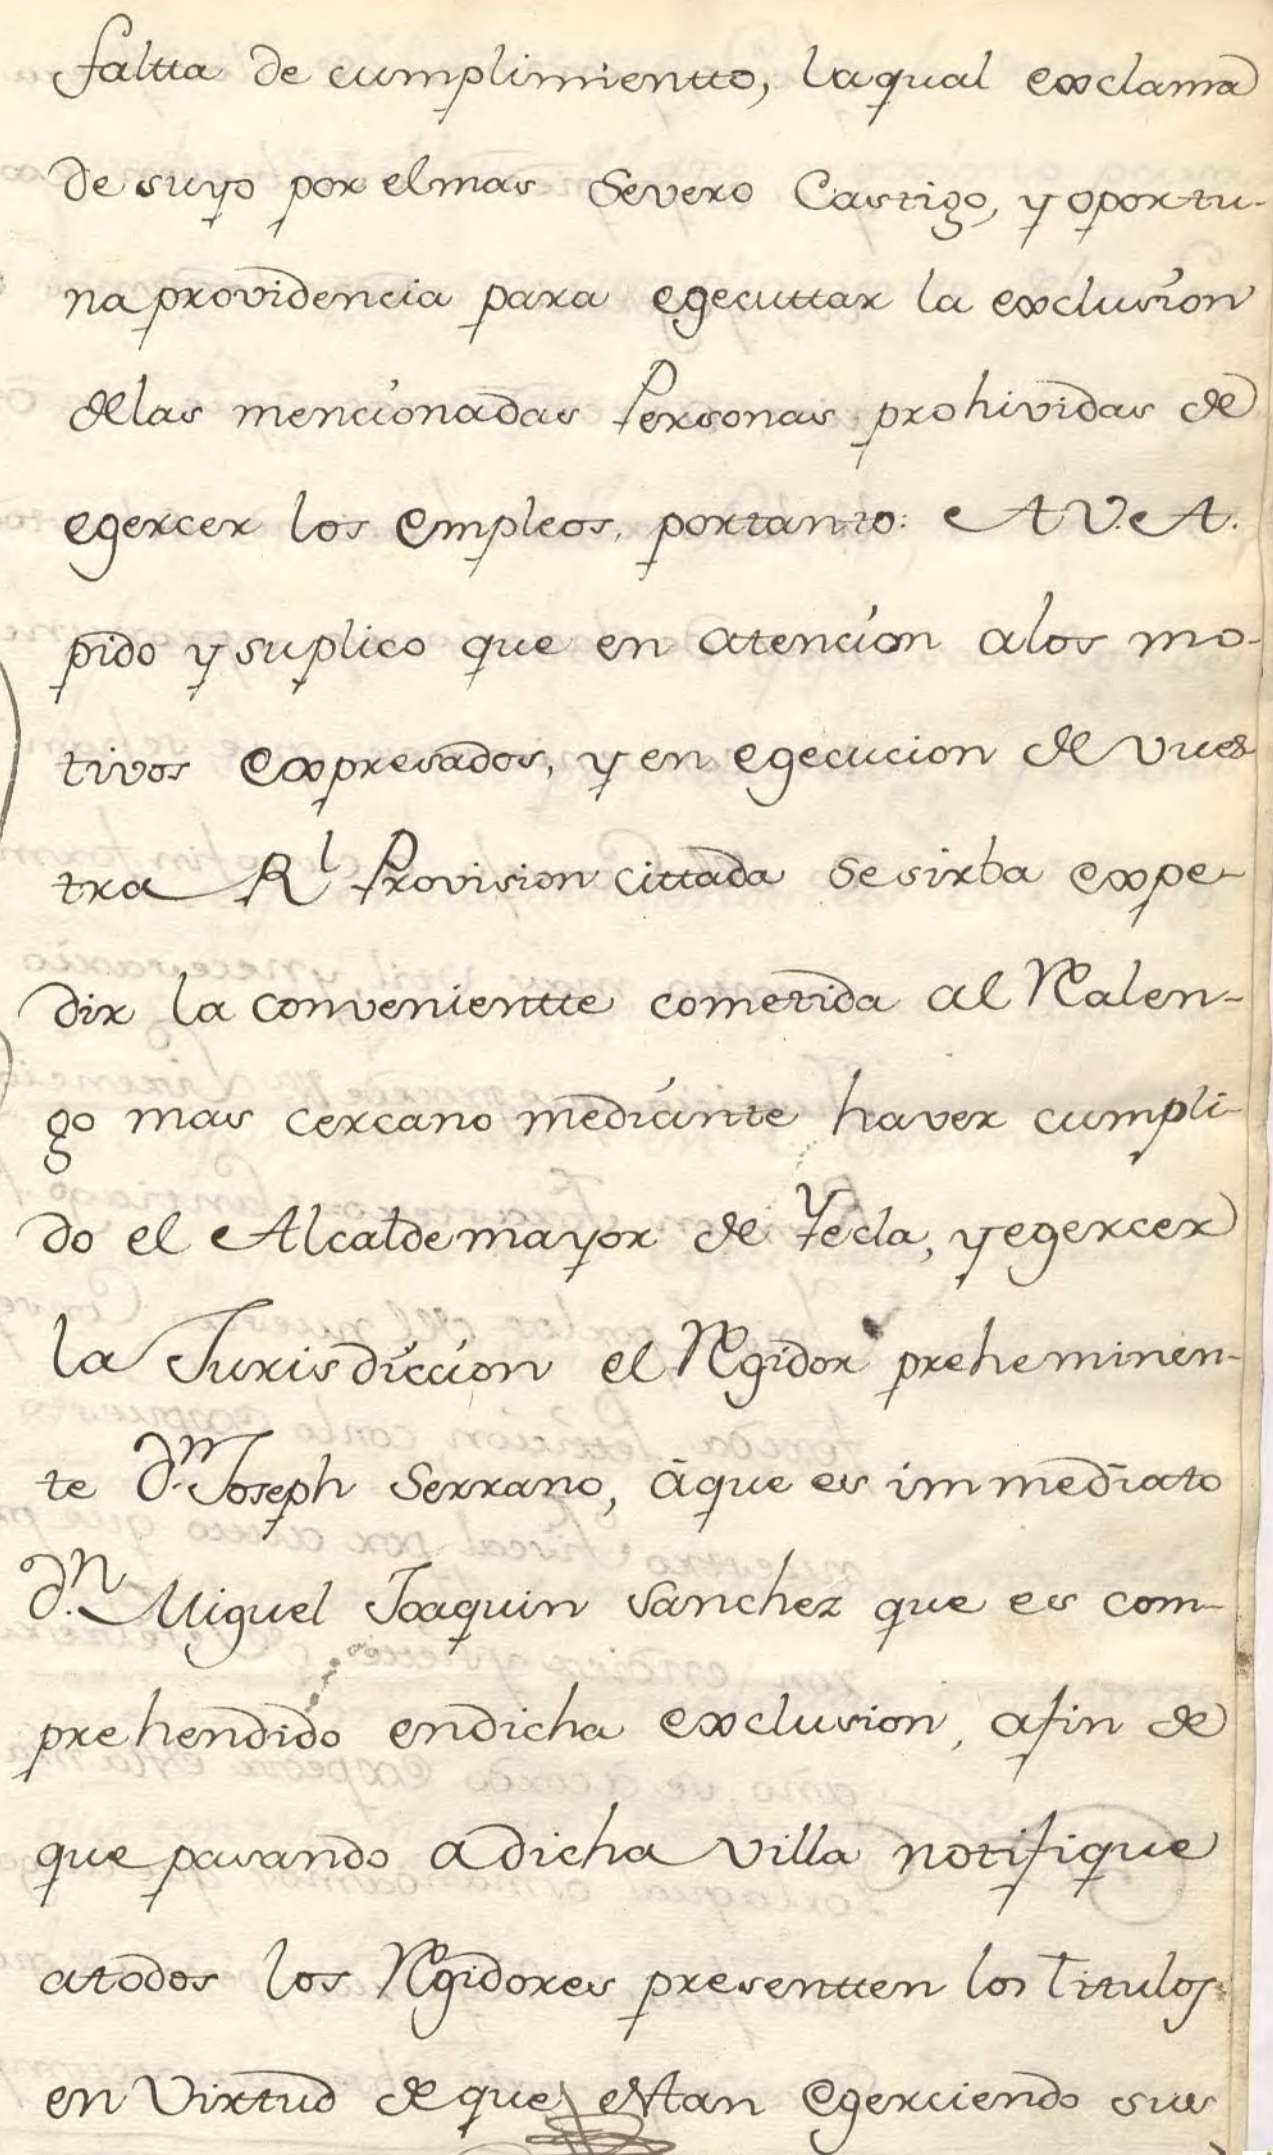 faltta de cumplimientto, laqual exclama
de suyo por elmas Severo Castigo, y oportu-
na providencia para egecuttar la exclusion
delas mencionadas Personas prohividas de
egercer los empleos, portanto: A V. A.
pido y suplico que en atencion alos mo-
tivos expresados, y en egecucion de vues
tra Rl Provision cittada sesirba expe-
dir la convenientte cometida al Realen-
go mas cercano mediante haver cumpli-
do el Alcalde mayor de Yecla, y egercer
la Jurisdiccion el Regidor preheminen-
te Dn. Joseph Serrano, àque es immediato
Dn. Miguel Joaquin Sanchez que es com-
prehendido endicha exclusion, afin de
que pasando adicha villa notifique
atodos los Regidores presentten los titulos
en Virtud de que estan egerciendo sus